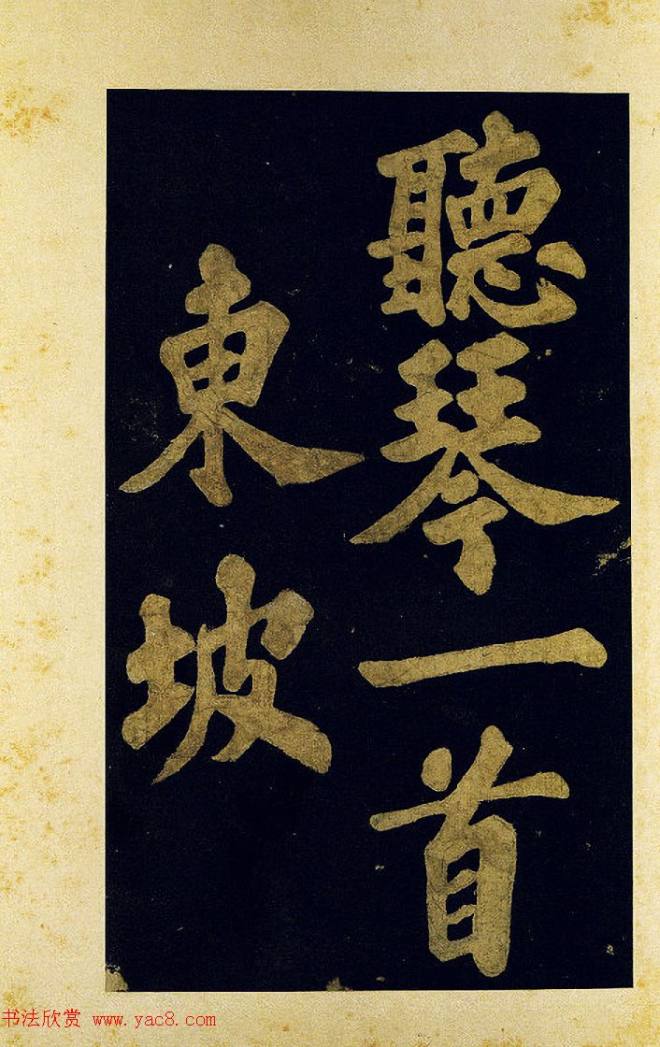 聽琴一首
東坡
书法欣赏 www.yac8.com